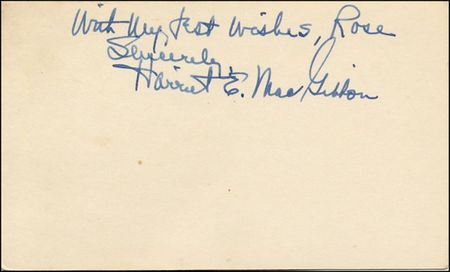 With My Best Wishes, Rose
Sincerely,
Harriet E. MacGibbon